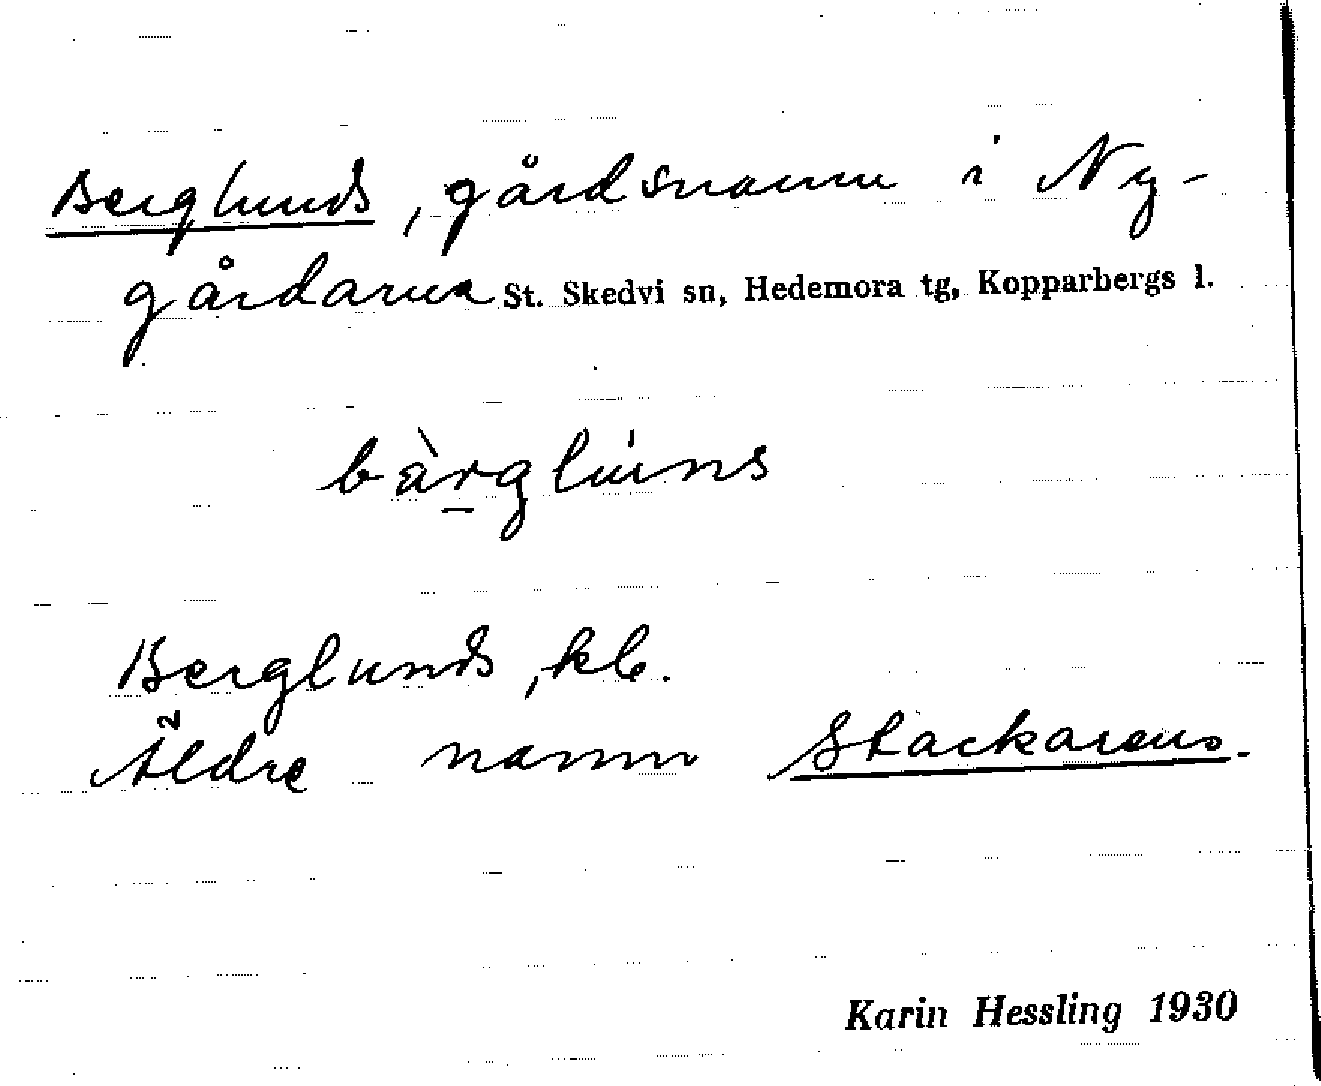 Berglunds, gårdsnamn i Ny-
gårdarna St. Skedvi sn, Hedemora tg, Kopparbergs l.
bàrgluns
Berglunds, kb.
Äldre namn Stackarens.
Karin Hessling 1930